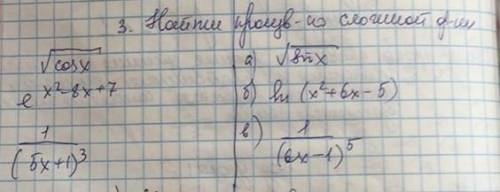 3. Найти произв-ю сложной ф-ии
√cosx
e^(x²-8x+7)
1/(5x+1)³
а) √sinx
б) ln (x²+6x-5)
в) 1/(6x-1)⁵